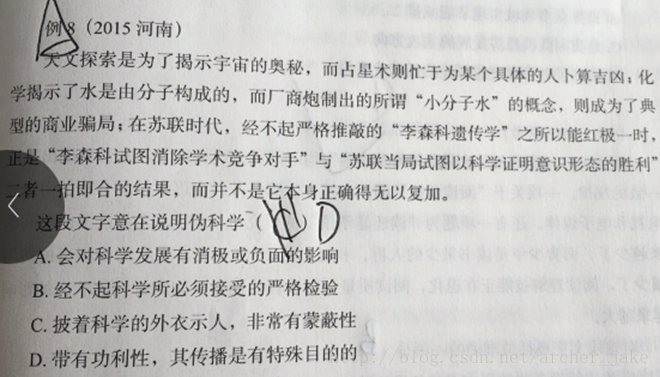 例8（2015 河南）
天文探索是为了揭示宇宙的奥秘，而占星术则忙于为某个具体的人卜算吉凶；化
学揭示了水是由分子构成的，而厂商炮制出的所谓“小分子水”的概念，则成为了典
型的商业骗局；在苏联时代，经不起严格推敲的“李森科遗传学”之所以能红极一时，
正是“李森科试图消除学术竞争对手”与“苏联当局试图以科学证明意识形态的胜利”
二者一拍即合的结果，而并不是它本身正确得无以复加。
这段文字意在说明伪科学（ D
A. 会对科学发展有消极或负面的影响
B. 经不起科学所必须接受的严格检验
C. 披着科学的外衣示人，非常有蒙蔽性
D. 带有功利性，其传播是有特殊目的的
http://blog.csdn.net/archer_jake